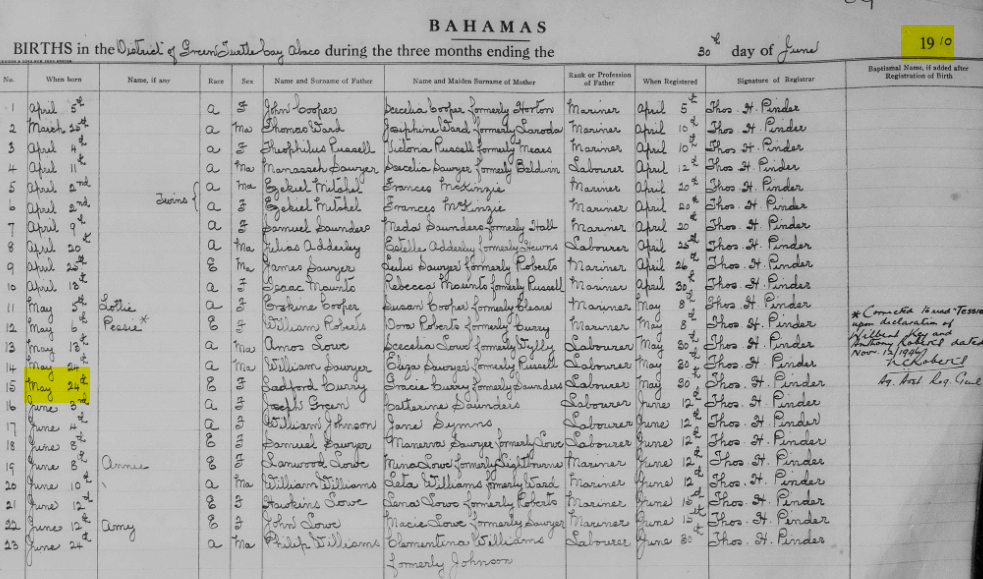 BAHAMAS
BIRTHS in the District of Green Turtle Cay Abaco during the three months ending the 30th day of June 1910
No. When born Name, if any Race Sex Name and Surname of Father Name and Maiden Surname of Mother Rank or Profession of Father When Registered Signature of Registrar Baptismal Name, if added after Registration of Birth
1 April 5th A F John Cooper Secelia Cooper formerly Horton Mariner April 5th Thos. H. Pinder
2 March 25th A Ma Thomas Ward Josephine Ward formerly Laroda Mariner April 10th Thos. H. Pinder
3 April 4th A F Theophilus Russell Victoria Russell formerly Mears Mariner April 10th Thos. H. Pinder
4 April 11th A Ma Manasseh Sawyer Secelia Sawyer formerly Baldwin Labourer April 12th Thos. H. Pinder
5 April 2nd Twins { A Ma Ezekiel Mitchel Frances McKinzie Mariner April 20th Thos. H. Pinder
6 April 2nd A F Ezekiel Mitchel Frances McKinzie Mariner April 20th Thos. H. Pinder
7 April 9th A F Samuel Saunders Meda Saunders formerly Hall Mariner April 20 Thos. H. Pinder
8 April 20th A Ma Julias Adderley Estelle Adderley formerly Labourer April 25th Thos. H. Pinder
9 April 25th E Ma James Sawyer Lulu Sawyer formerly Roberts Mariner April 26th Thos. H. Pinder
10 April 18th A F Isaac Mounto Rebecca Mounto formerly Russell Mariner April 30th Thos. H. Pinder
11 May 5th Lotie A F Erskine Cooper Susan Cooper formerly Cleare Mariner May 8th Thos. H. Pinder
12 May 6th Pessie* E F William Roberts Dora Roberts formerly Curry Mariner May 8th Thos. H. Pinder
* Corrected to read
upon declaration of
Key and
Anthony dated
Nov. 12/1946
13 May 18th A Ma Amos Lowe Secelia Lowe formerly Wylly Labourer May 30th Thos. H. Pinder
14 May 24th A Ma William Sawyer Eliza Sawyer formerly Russell Labourer May 30th Thos. H. Pinder
15 May 24th E F Sadford Curry Gracie Curry formerly Saunders Labourer May 30th Thos. H. Pinder
Ag. Asst. Reg. Genl
16 June 3rd A F Joseph Green Catherine Saunders Labourer June 12th Thos. H. Pinder
17 June 4th A F William Johnson Jane Symns Labourer June 12th Thos. H. Pinder
18 June 8th E F Samuel Sawyer Manerva Sawyer formerly Lowe Labourer June 12th Thos. H. Pinder
19 June 8th Annie E F Lanwood Lowe Mina Lowe formerly Lightbourne Mariner June 12th Thos. H. Pinder
20 June 10th A Ma William Williams Leta Williams formerly Ward Mariner June 12th Thos. H. Pinder
21 June 12 E F Hawkins Lowe Lena Lowe formerly Roberts Mariner June Thos. H. Pinder
22 June 12th Amy E F John Lowe Macie Lowe formerly Sawyer Mariner June 15th Thos. H. Pinder
23 June 24th A Ma Philip Williams Clementina Williams Labourer June 30th Thos. H. Pinder
formerly Johnson